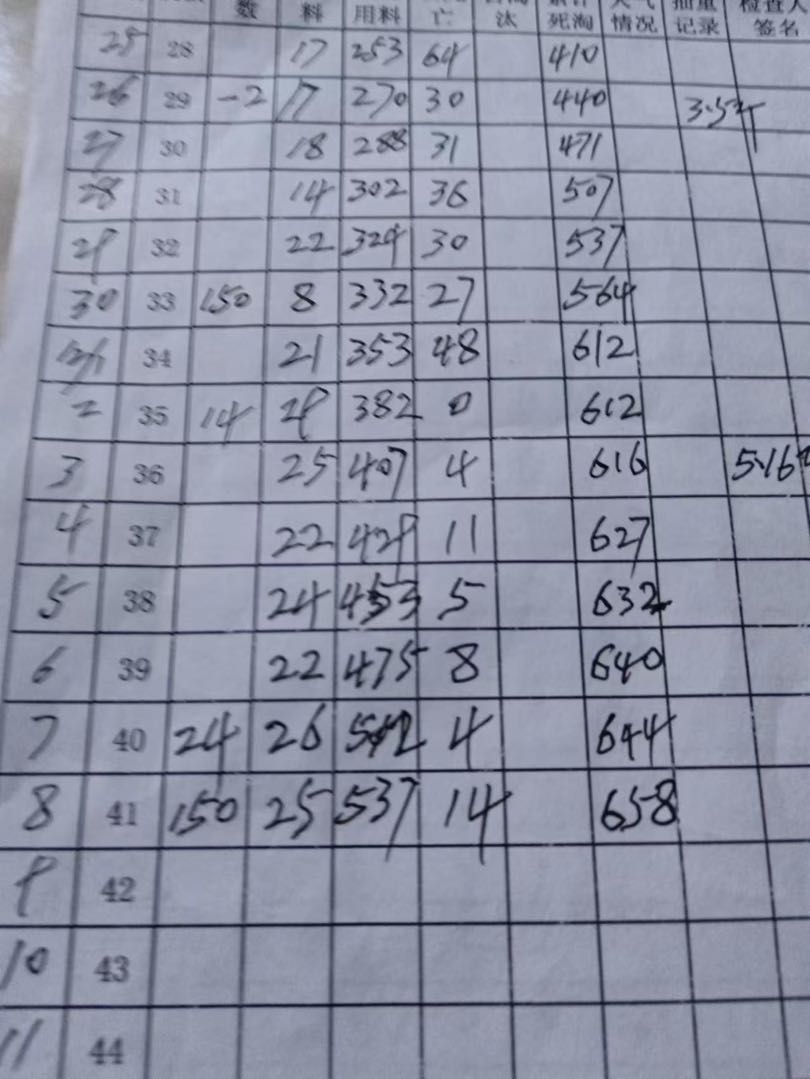 数 料 用料 亡 汰 死淘 情况 记录 签名
25 28 17 253 64 410
26 29 -2 17 270 30 440
27 30 18 288 31 471
28 31 14 302 36 507
29 32 22 324 30 537
30 33 150 8 332 27 564
34 21 353 48 612
2 35 14 29 382 0 612
3 36 25 407 4 616
4 37 22 429 11 627
5 38 24 453 5 632
6 39 22 475 8 640
7 40 24 26 4 644
8 41 150 25 537 14 658
9 42
10 43
11 44